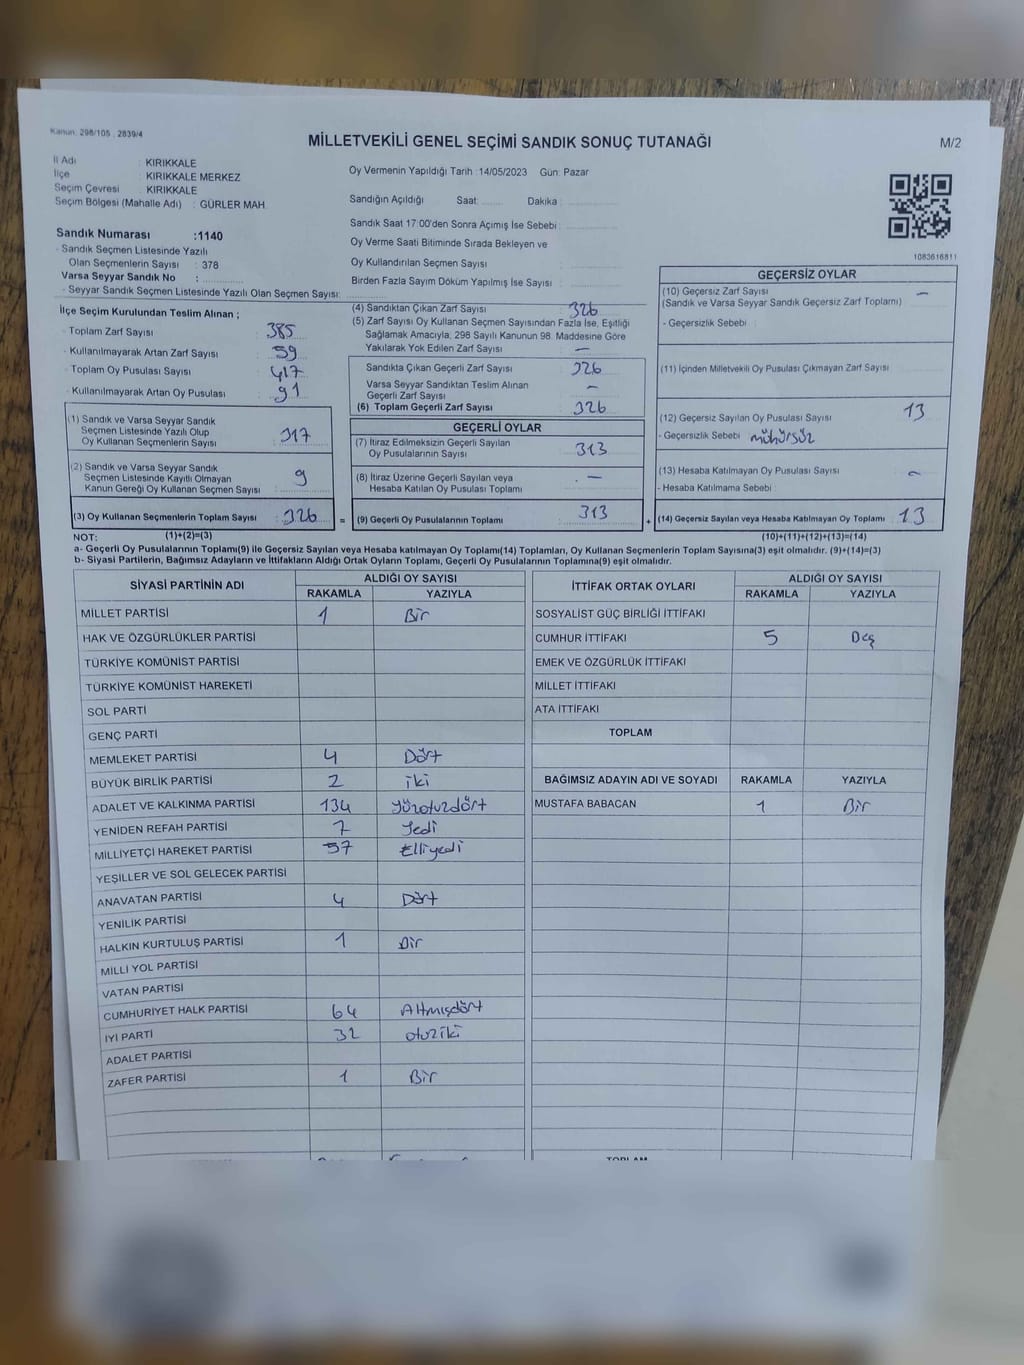 Kanun: 298/105 , 2839/4
MİLLETVEKİLİ GENEL SEÇİMİ SANDIK SONUÇ TUTANAĞI
M/2
İl Adı : KIRIKKALE
İlçe : KIRIKKALE MERKEZ
Seçim Çevresi : KIRIKKALE
Seçim Bölgesi (Mahalle Adı) : GÜRLER MAH.
Sandık Numarası :1140
- Sandık Seçmen Listesinde Yazılı
Olan Seçmenlerin Sayısı : 378
Varsa Seyyar Sandık No :
- Seyyar Sandık Seçmen Listesinde Yazılı Olan Seçmen Sayısı:
Oy Vermenin Yapıldığı Tarih :14/05/2023 Gün: Pazar
Sandığın Açıldığı Saat: Dakika :
Sandık Saat 17:00'den Sonra Açımış İse Sebebi :
Oy Verme Saati Bitiminde Sırada Bekleyen ve
Oy Kullandırılan Seçmen Sayısı :
Birden Fazla Sayım Döküm Yapılmış İse Sayısı :
1083616811
İlçe Seçim Kurulundan Teslim Alınan ;
- Toplam Zarf Sayısı : 385
- Kullanılmayarak Artan Zarf Sayısı : 59
- Toplam Oy Pusulası Sayısı : 417
- Kullanılmayarak Artan Oy Pusulası : 91
(1) Sandık ve Varsa Seyyar Sandık
Seçmen Listesinde Yazılı Olup
Oy Kullanan Seçmenlerin Sayısı : 317
(2) Sandık ve Varsa Seyyar Sandık
Seçmen Listesinde Kayıtlı Olmayan
Kanun Gereği Oy Kullanan Seçmen Sayısı : 9
(3) Oy Kullanan Seçmenlerin Toplam Sayısı : 326
(1)+(2)=(3)
(4) Sandıktan Çıkan Zarf Sayısı : 326
(5) Zarf Sayısı Oy Kullanan Seçmen Sayısından Fazla İse, Eşitliği
Sağlamak Amacıyla, 298 Sayılı Kanunun 98. Maddesine Göre
Yakılarak Yok Edilen Zarf Sayısı : —
Sandıkta Çıkan Geçerli Zarf Sayısı : 326
Varsa Seyyar Sandıktan Teslim Alınan
Geçerli Zarf Sayısı : —
(6) Toplam Geçerli Zarf Sayısı : 326
GEÇERLİ OYLAR
(7) İtiraz Edilmeksizin Geçerli Sayılan
Oy Pusulalarının Sayısı : 313
(8) İtiraz Üzerine Geçerli Sayılan veya
Hesaba Katılan Oy Pusulası Toplamı : —
= (9) Geçerli Oy Pusulalarının Toplamı : 313
GEÇERSİZ OYLAR
(10) Geçersiz Zarf Sayısı : —
(Sandık ve Varsa Seyyar Sandık Geçersiz Zarf Toplamı)
- Geçersizlik Sebebi :
(11) İçinden Milletvekili Oy Pusulası Çıkmayan Zarf Sayısı :
(12) Geçersiz Sayılan Oy Pusulası Sayısı : 13
- Geçersizlik Sebebi : mühürsüz
(13) Hesaba Katılmayan Oy Pusulası Sayısı : —
- Hesaba Katılmama Sebebi :
+ (14) Geçersiz Sayılan veya Hesaba Katılmayan Oy Toplamı : 13
(10)+(11)+(12)+(13)=(14)
NOT:
a- Geçerli Oy Pusulalarının Toplamı(9) ile Geçersiz Sayılan veya Hesaba katılmayan Oy Toplamı(14) Toplamları, Oy Kullanan Seçmenlerin Toplam Sayısına(3) eşit olmalıdır. (9)+(14)=(3)
b- Siyasi Partilerin, Bağımsız Adayların ve İttifakların Aldığı Ortak Oyların Toplamı, Geçerli Oy Pusulalarının Toplamına(9) eşit olmalıdır.
SİYASİ PARTİNİN ADI ALDIĞI OY SAYISI
RAKAMLA YAZIYLA
MİLLET PARTİSİ 1 Bir
HAK VE ÖZGÜRLÜKLER PARTİSİ
TÜRKİYE KOMÜNİST PARTİSİ
TÜRKİYE KOMÜNİST HAREKETİ
SOL PARTİ
GENÇ PARTİ
MEMLEKET PARTİSİ 4 Dört
BÜYÜK BİRLİK PARTİSİ 2 iki
ADALET VE KALKINMA PARTİSİ 134 Yüzotuzdört
YENİDEN REFAH PARTİSİ 7 Yedi
MİLLİYETÇİ HAREKET PARTİSİ 57 Elliyedi
YEŞİLLER VE SOL GELECEK PARTİSİ
ANAVATAN PARTİSİ 4 Dört
YENİLİK PARTİSİ
HALKIN KURTULUŞ PARTİSİ 1 Bir
MİLLİ YOL PARTİSİ
VATAN PARTİSİ
CUMHURİYET HALK PARTİSİ 64 Altmışdört
İYİ PARTİ 32 otuziki
ADALET PARTİSİ
ZAFER PARTİSİ 1 Bir
İTTİFAK ORTAK OYLARI ALDIĞI OY SAYISI
RAKAMLA YAZIYLA
SOSYALİST GÜÇ BİRLİĞİ İTTİFAKI
CUMHUR İTTİFAKI 5 Beş
EMEK VE ÖZGÜRLÜK İTTİFAKI
MİLLET İTTİFAKI
ATA İTTİFAKI
TOPLAM
BAĞIMSIZ ADAYIN ADI VE SOYADI RAKAMLA YAZIYLA
MUSTAFA BABACAN 1 Bir
TOPLAM